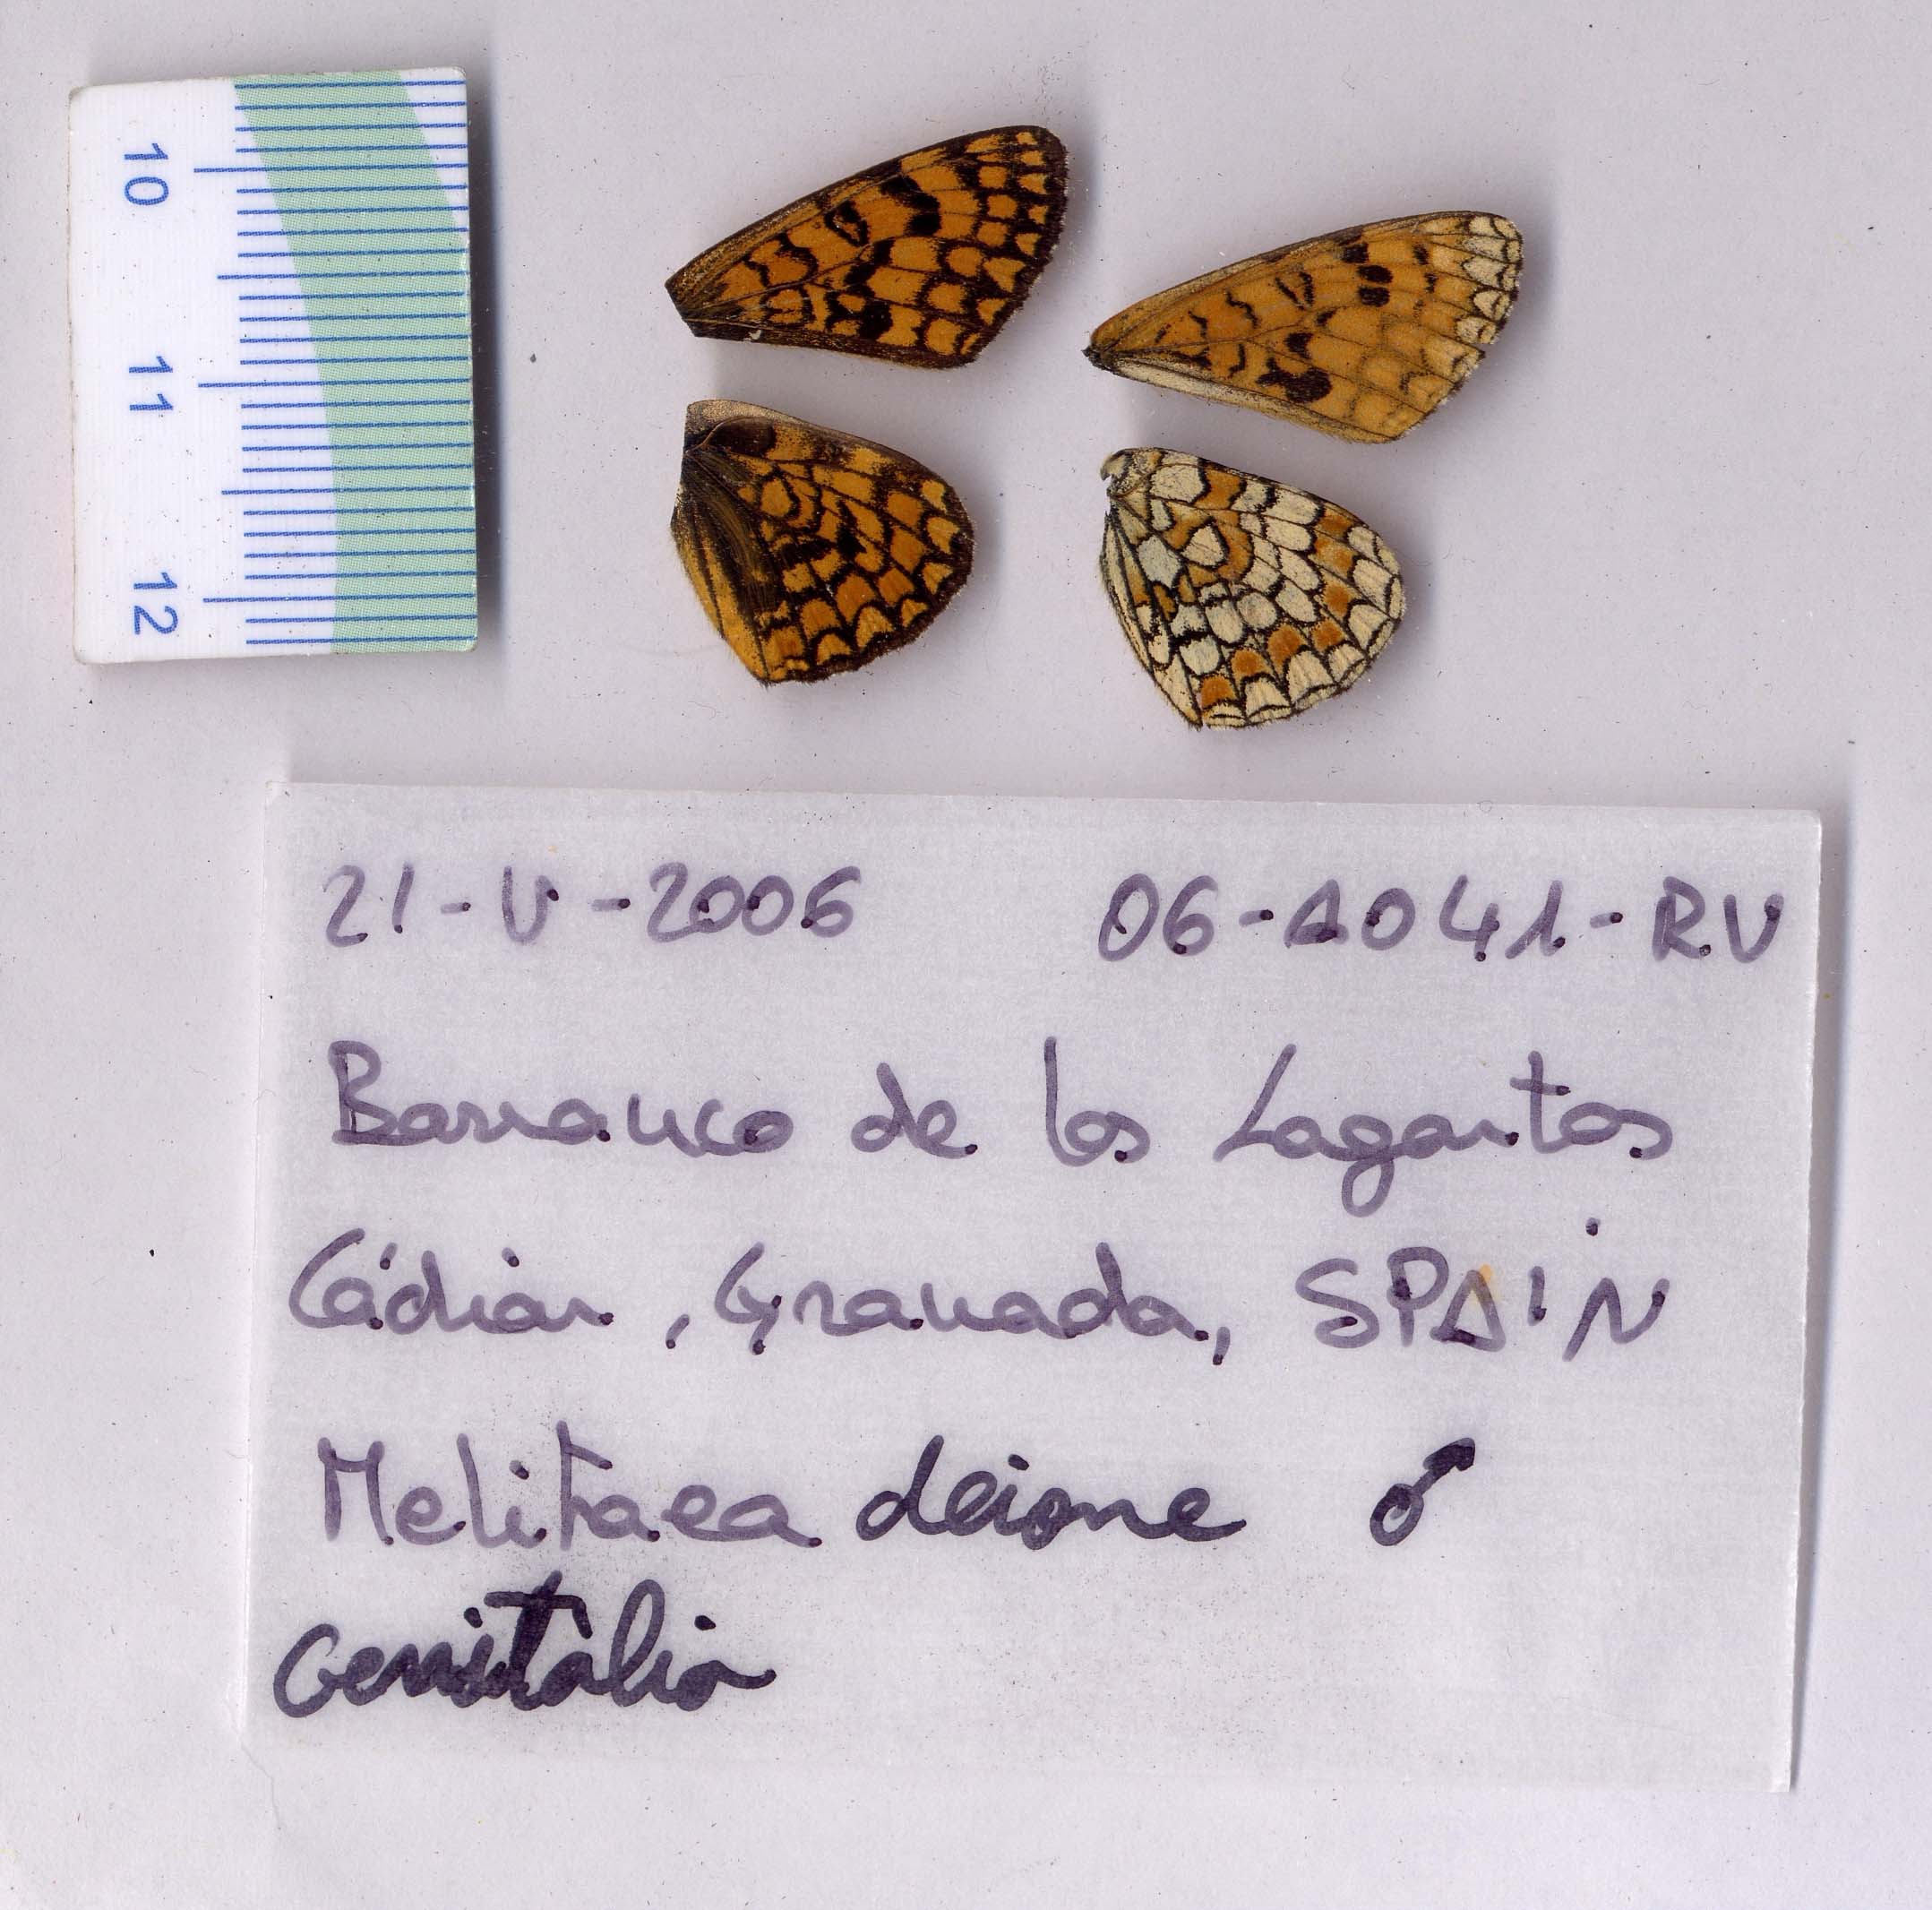 10
11
12
21-V-2006 06-A041-RV
Barranco de los Lagartos
Cádiar, Granada, SPAIN
Melitaea deione ♂
Genitalia